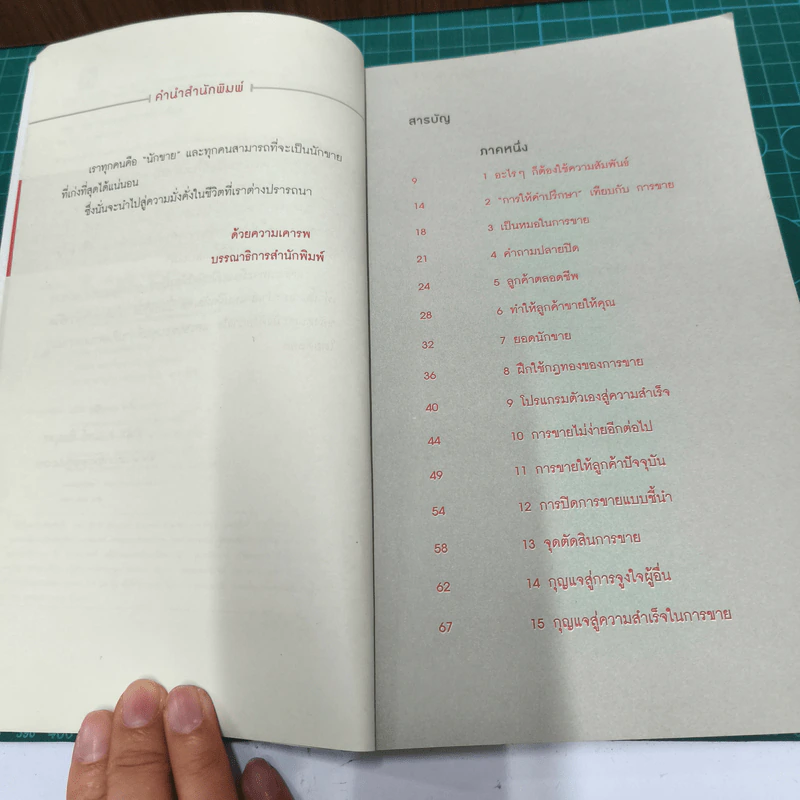 คำนำสำนักพิมพ์
เราทุกคนคือ "นักขาย" และทุกคนสามารถที่จะเป็นนักขาย
ที่เก่งที่สุดได้แน่นอน
ซึ่งนั่นจะนำไปสู่ความมั่งคั่งในชีวิตที่เราต่างปรารถนา
ด้วยความเคารพ
บรรณาธิการสำนักพิมพ์
สารบัญ
ภาคหนึ่ง
9 1 อะไรๆ ก็ต้องใช้ความสัมพันธ์
14 2 "การให้คำปรึกษา" เทียบกับ การขาย
18 3 เป็นหมอในการขาย
21 4 คำถามปลายปิด
24 5 ลูกค้าตลอดชีพ
28 6 ทำให้ลูกค้าขายให้คุณ
32 7 ยอดนักขาย
36 8 ฝึกใช้กฎทองของการขาย
40 9 โปรแกรมตัวเองสู่ความสำเร็จ
44 10 การขายไม่ง่ายอีกต่อไป
49 11 การขายให้ลูกค้าปัจจุบัน
54 12 การปิดการขายแบบชี้นำ
58 13 จุดตัดสินการขาย
62 14 กุญแจสู่การจูงใจผู้อื่น
67 15 กุญแจสู่ความสำเร็จในการขาย